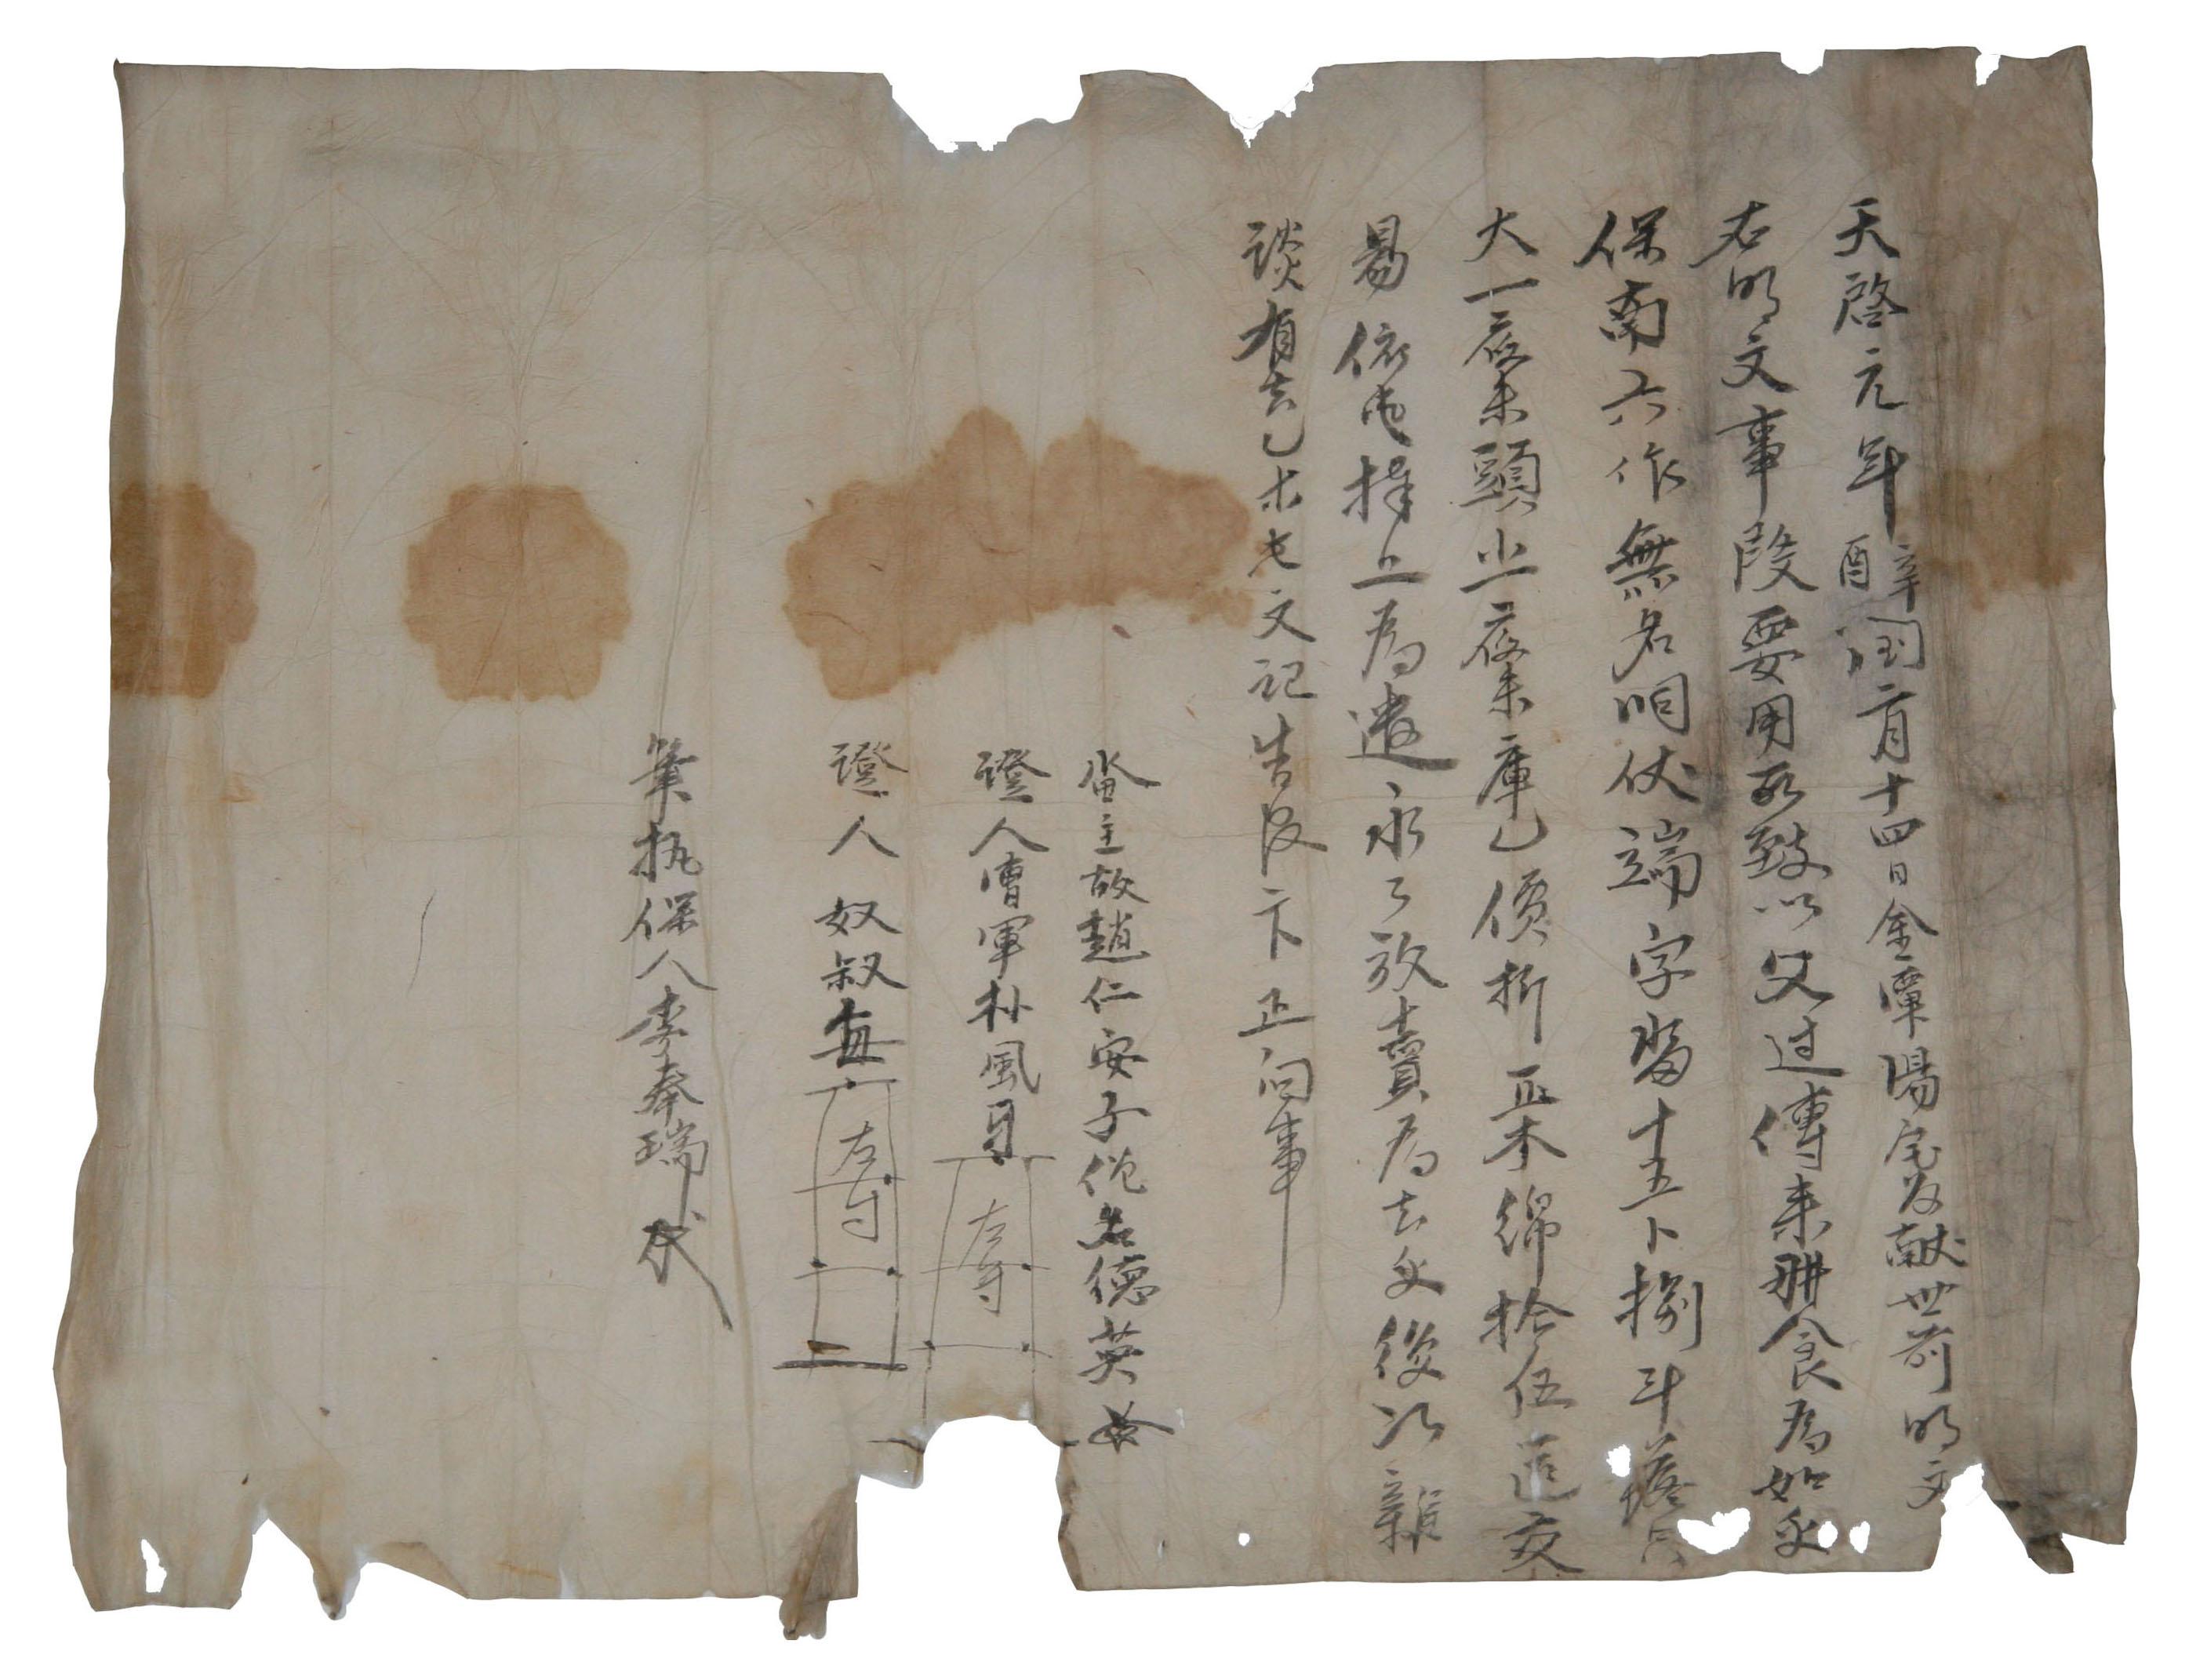 天啓元年辛酉閏二月十四日金潭陽宅奴献世前明文
右明文事段要用所致以父过傳来耕食爲如乎
保南六作無名咽伏端字畓十五卜捌斗落只
大一夜未頭少夜未庫乙價折正木綿拾伍疋交
易依數捧上爲遣永永放賣爲去乎後次雜
談有去乙等此文記告官卞正向事
畓主故趙仁安子係名德英
證人曺軍朴風
證人奴叔每
左寸
左寸
筆執保人李奉瑞